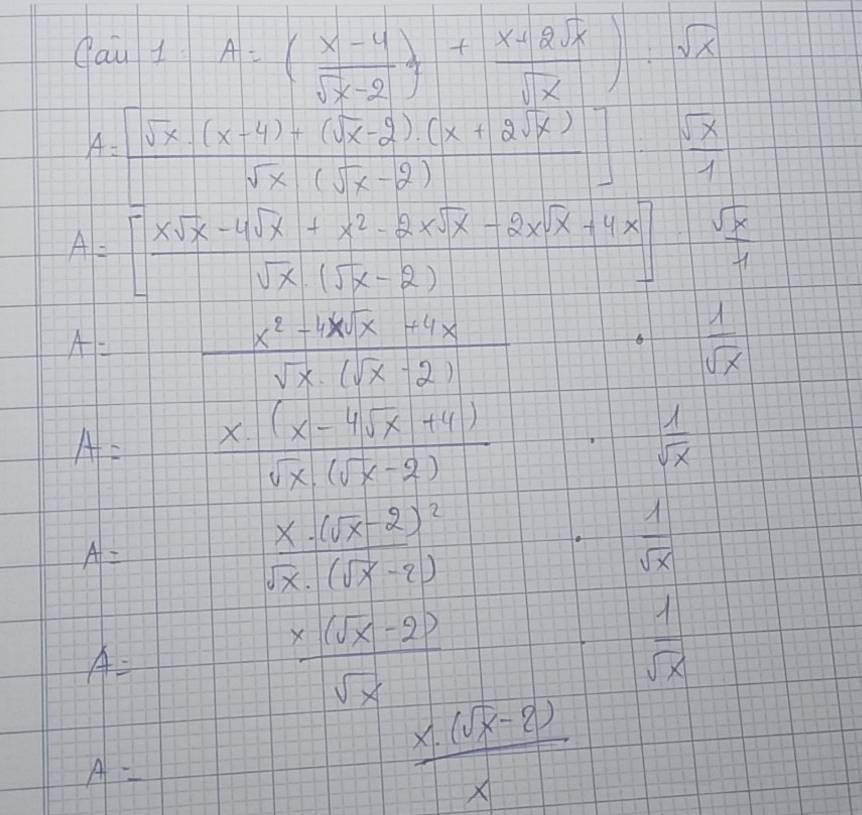 Câu 1: A = ( (x - 4)/(√x - 2) ) + (x + 2√x)/√x ) : √x
A = [ (√x . (x - 4) + (√x - 2) . (x + 2√x))/(√x . (√x - 2)) ] : √x/1
A = [ (x√x - 4√x + x² - 2x√x - 2x√x + 4x)/(√x . (√x - 2)) ] : √x/1
A = (x² - 4x√x + 4x)/(√x . (√x - 2)) . 1/√x
A = (x . (x - 4√x + 4))/(√x . (√x - 2)) . 1/√x
A = (x . (√x - 2)²)/(√x . (√x - 2)) . 1/√x
A = (x (√x - 2))/√x . 1/√x
A = (x . (√x - 2))/x